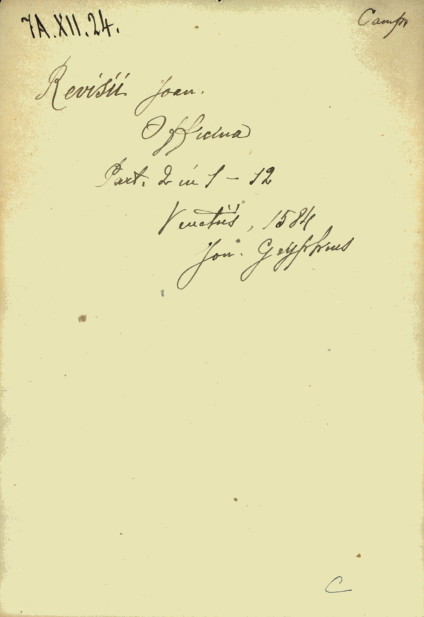 7A.XII.24.
Revisii Joan.
Officina
Part. 2 in 1 - 12
Venetiis, 1584
Jon. Gryphius
C